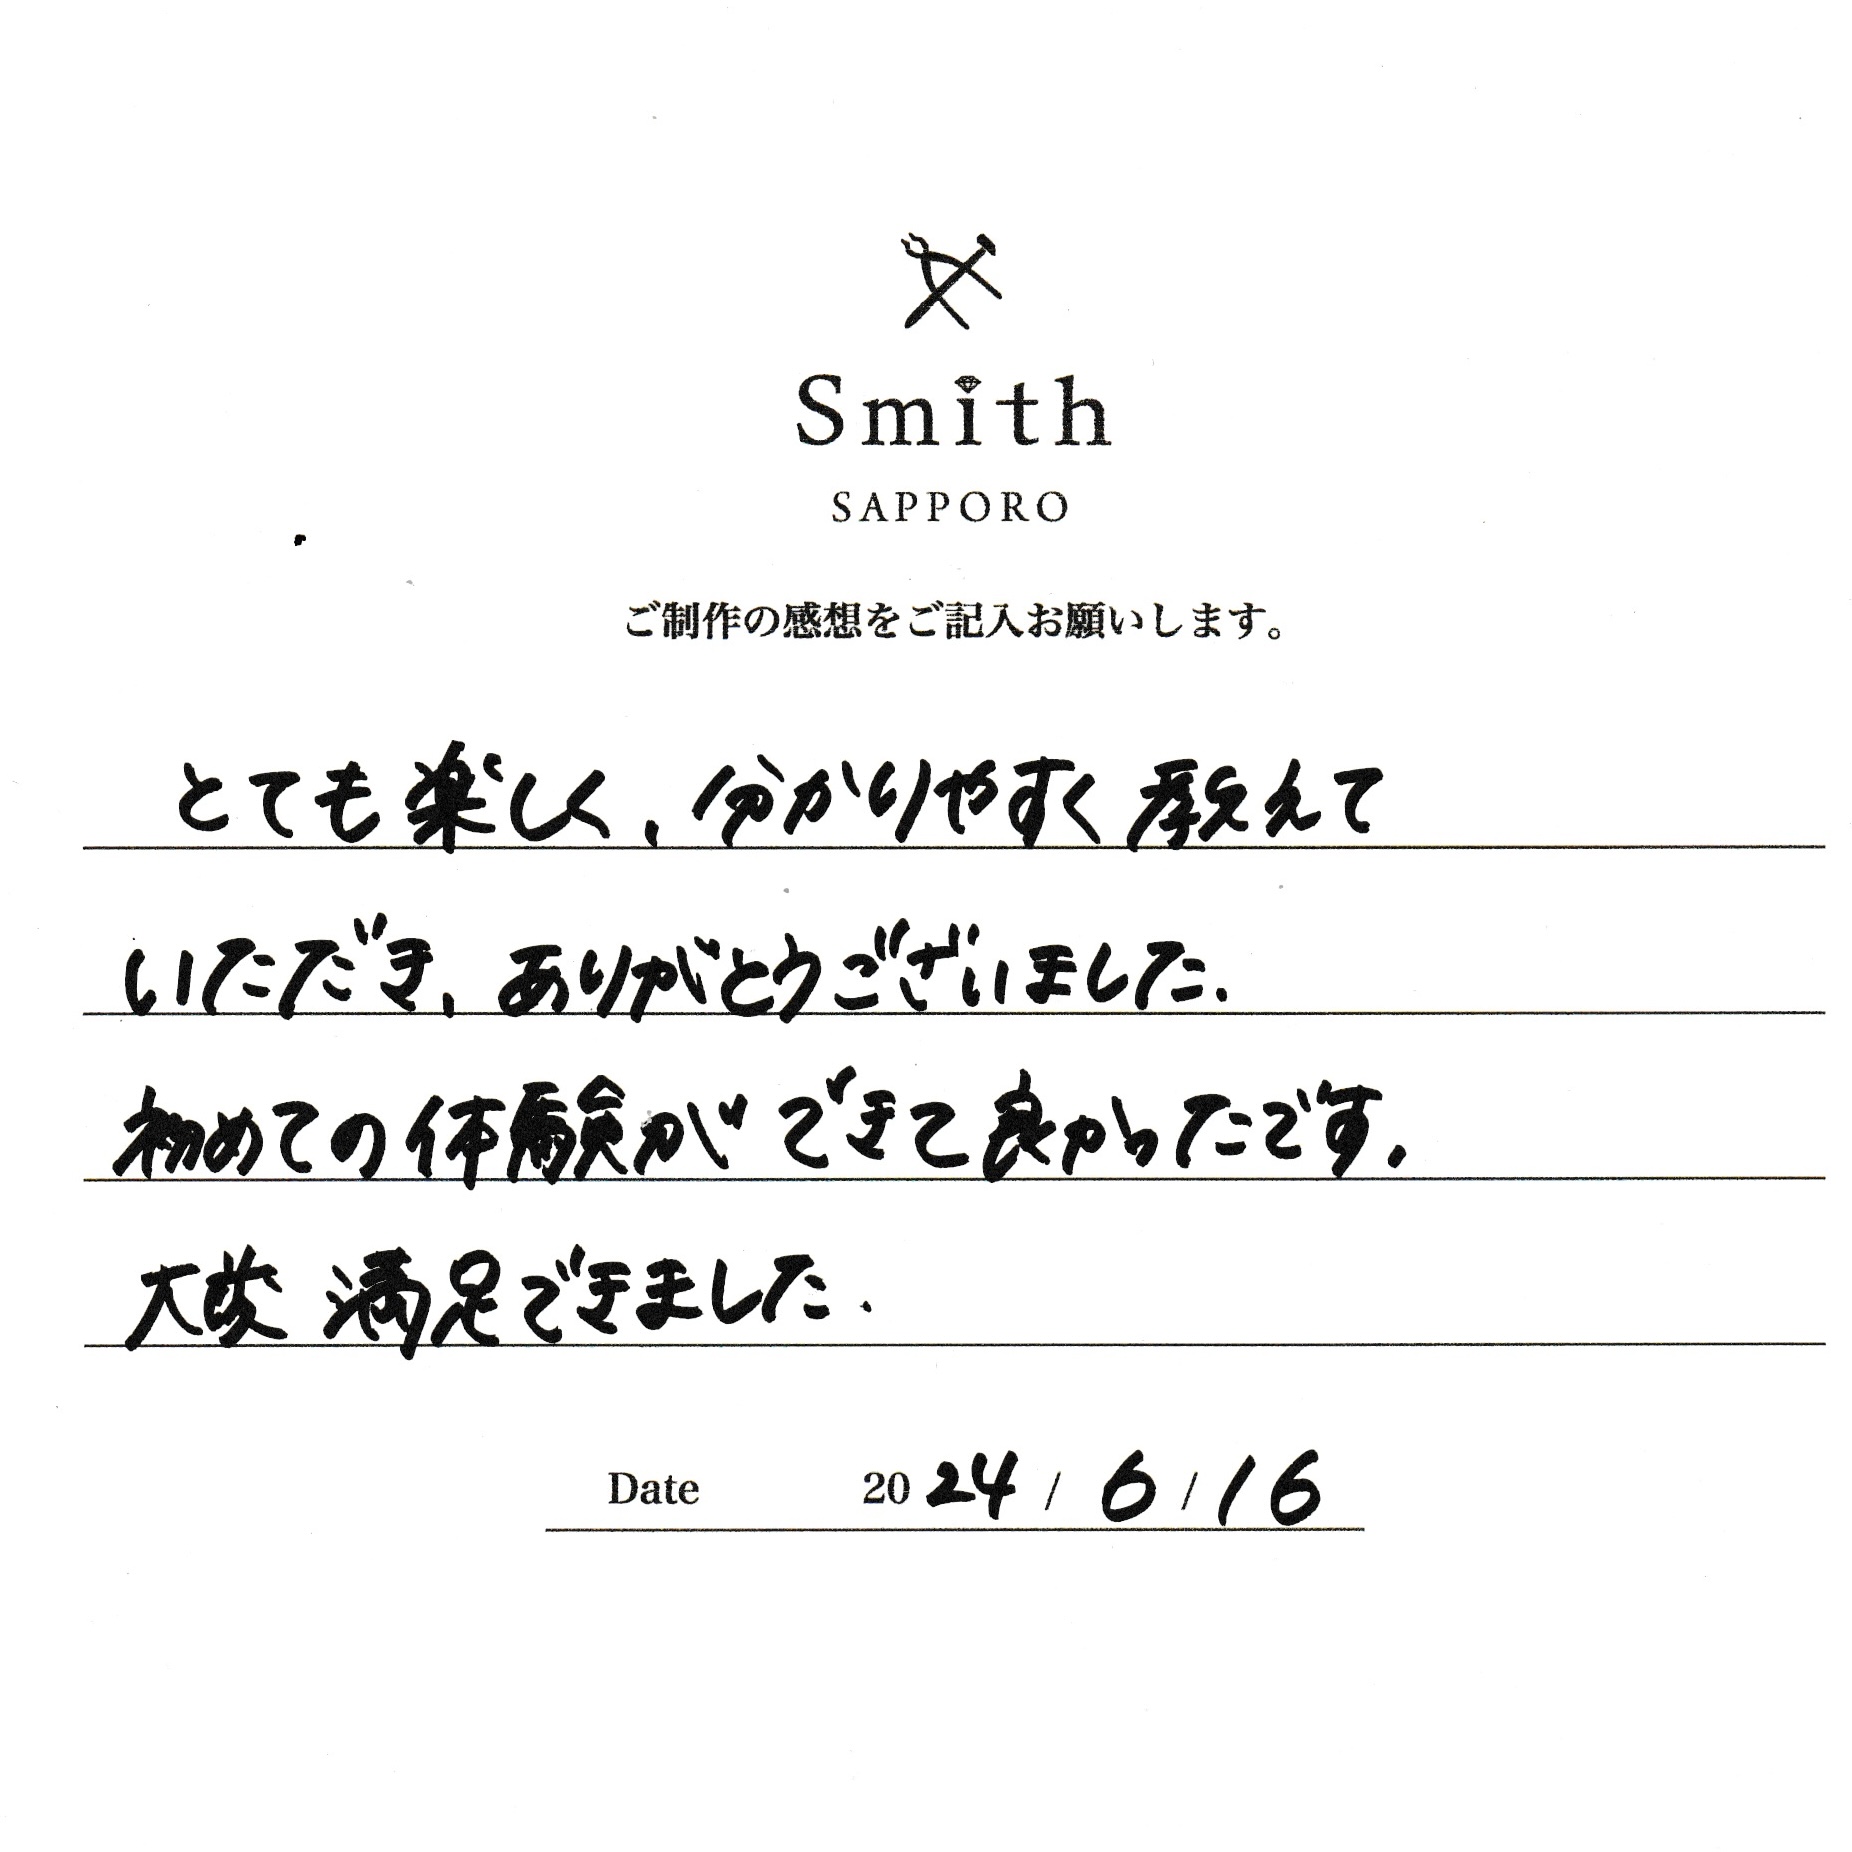 Smith
SAPPORO
ご制作の感想をご記入お願いします。
とても楽しく、分かりやすく教えて
いただき、ありがとうございました.
初めての体験ができて良かったです.
大変 満足できました.
Date 2024 / 6 / 16